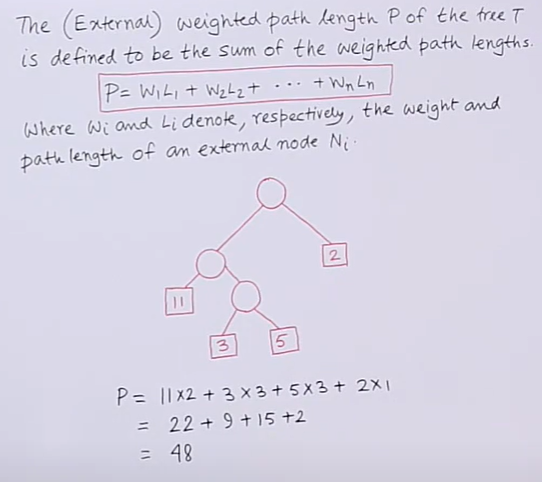 The (External) weighted path length P of the tree T
is defined to be the sum of the weighted path lengths.
P = W₁L₁ + W₂L₂ + ... + WₙLₙ
Where Wi and Li denote, respectively, the weight and
path length of an external node Ni.
2
11
3
5
P = 11×2 + 3×3 + 5×3 + 2×1
= 22 + 9 + 15 + 2
= 48